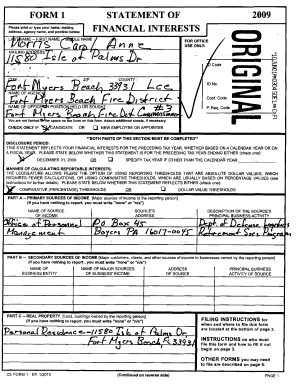 FORM 1
STATEMENT OF
FINANCIAL INTERESTS
2009
Please print or type your name, mailing
address, agency name, and position below:
FOR OFFICE
USE ONLY:
LAST NAME -- FIRST NAME -- MIDDLE NAME
Carol Anne
MAILING ADDRESS
11580 Isle of Palms Dr
ORIGINAL
ID Code
ID No.
Conf. Code
P. Req. Code
CITY ZIP COUNTY
Fort Myers Beach 33931 Lee
NAME OF AGENCY
Fort Myers Beach Fire District
NAME OF OFFICE OR POSITION HELD OR SOUGHT
CHECK ONLY IF CANDIDATE OR NEW EMPLOYEE OR APPOINTEE
**BOTH PARTS OF THIS SECTION MUST BE COMPLETED**
DISCLOSURE PERIOD:
THIS STATEMENT REFLECTS YOUR FINANCIAL INTERESTS FOR THE PRECEDING TAX YEAR, WHETHER BASED ON A CALENDAR YEAR OR ON
A FISCAL YEAR. PLEASE STATE BELOW WHETHER THIS STATEMENT IS FOR THE PRECEDING TAX YEAR ENDING EITHER (check one):
DECEMBER 31, 2009 OR SPECIFY TAX YEAR IF OTHER THAN THE CALENDAR YEAR:
MANNER OF CALCULATING REPORTABLE INTERESTS:
THE LEGISLATURE ALLOWS FILERS THE OPTION OF USING REPORTING THRESHOLDS THAT ARE ABSOLUTE DOLLAR VALUES, WHICH
REQUIRES FEWER CALCULATIONS, OR USING COMPARATIVE THRESHOLDS, WHICH ARE USUALLY BASED ON PERCENTAGE VALUES (see
instructions for further details). PLEASE STATE BELOW WHETHER THIS STATEMENT REFLECTS EITHER (check one):
COMPARATIVE (PERCENTAGE) THRESHOLDS OR DOLLAR VALUE THRESHOLDS
PART A -- PRIMARY SOURCES OF INCOME [Major sources of income to the reporting person]
(If you have nothing to report, you must write "none" or "n/a")
NAME OF SOURCE
OF INCOME
SOURCE'S
ADDRESS
DESCRIPTION OF THE SOURCE'S
PRINCIPAL BUSINESS ACTIVITY
Office of Personnel PO Box 45 Dept. of Defense
Management Boyers PA 16017-0045 Retirement Svcs Program
PART B -- SECONDARY SOURCES OF INCOME [Major customers, clients, and other sources of income to businesses owned by the reporting person]
(If you have nothing to report, you must write "none" or "n/a")
NAME OF
BUSINESS ENTITY
NAME OF MAJOR SOURCES
OF BUSINESS' INCOME
ADDRESS
OF SOURCE
PRINCIPAL BUSINESS
ACTIVITY OF SOURCE
PART C -- REAL PROPERTY [Land, buildings owned by the reporting person]
(If you have nothing to report, you must write "none" or "n/a")
Personal Residence - 11580 Isle of Palms Dr,
Fort Myers Beach, Fl 33931
FILING INSTRUCTIONS for
when and where to file this form
are located at the bottom of page 2.
INSTRUCTIONS on who must file
this form and how to fill it out
begin on page 3.
OTHER FORMS you may need
to file are described on page 6.
CE FORM 1 - Eff. 1/2010
(Continued on reverse side)
PAGE 1